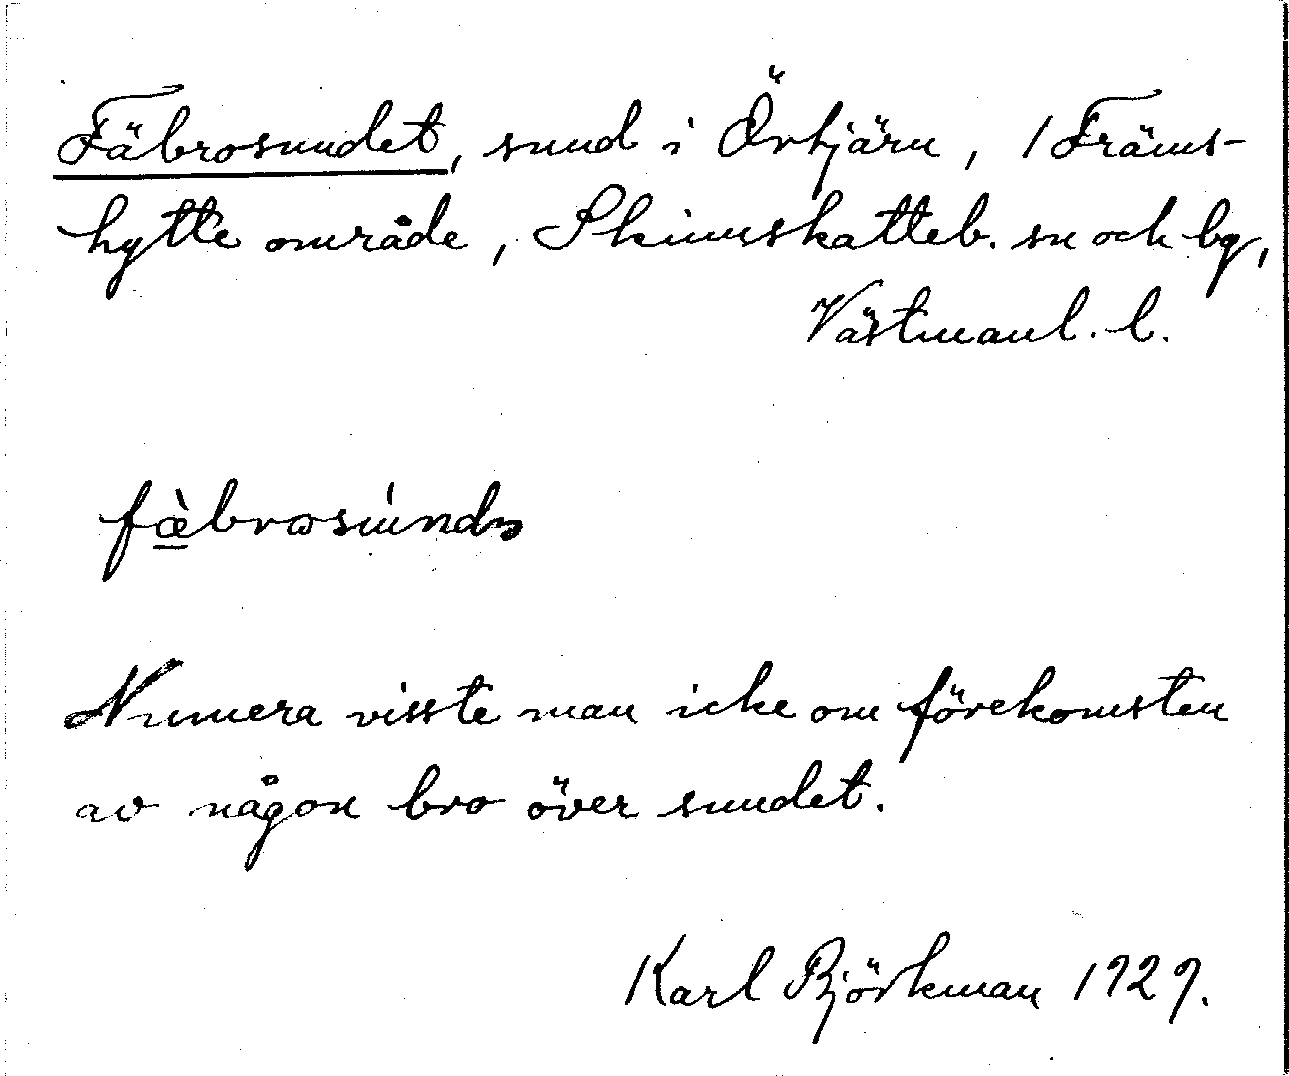 Fäbrosundet, sund i Örtjärn, / Främs-
hytte område, Skinnskatteb. sn och bg,
Västmanl. l.
fæ̀brosúndə
Numera visste man icke om förekomsten
av någon bro över sundet.
Karl Björkman 1929.